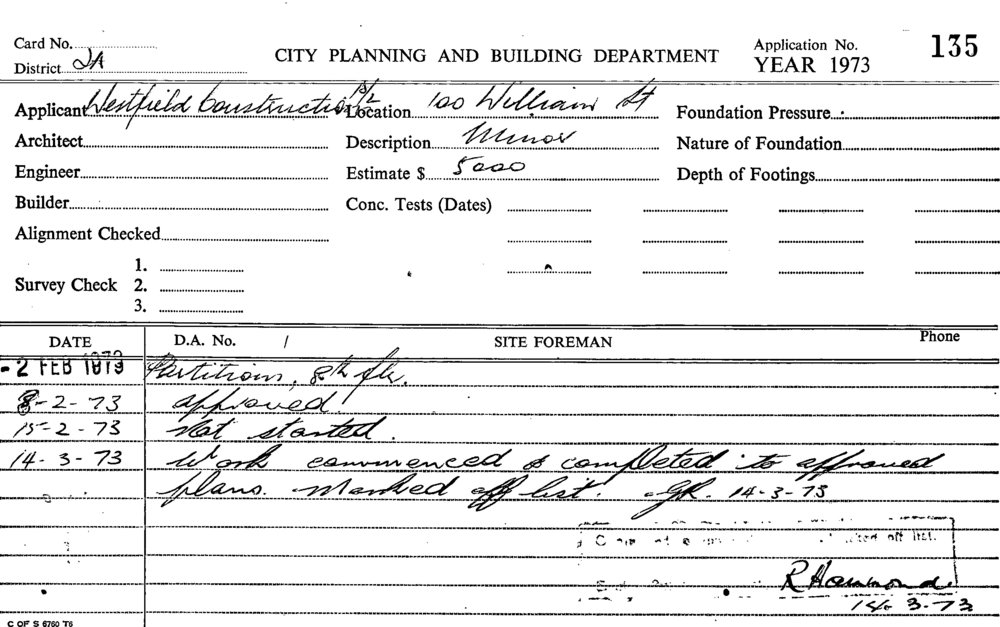 Card No.
District 2A
CITY PLANNING AND BUILDING DEPARTMENT
Application No. 135
YEAR 1973
Applicant Westfield Constructions
Location 100 William St
Foundation Pressure
Architect
Description Minor
Nature of Foundation
Engineer
Estimate $ 5000
Depth of Footings
Builder
Conc. Tests (Dates)
Alignment Checked
Survey Check 1.
2.
3.
DATE D.A. No. / SITE FOREMAN Phone
-2 FEB 1973 Partitions, 8th flr.
8-2-73 approved.
15-2-73 Not started.
14-3-73 Work commenced & completed to approved
plans. Marked off list. 14-3-73
off list.
R Hammond.
14. 3-73
C OF S 6760 T6